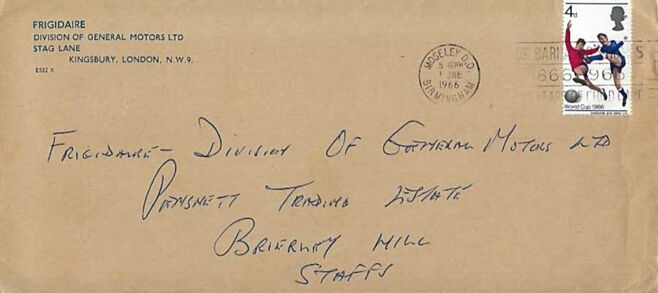 FRIGIDAIRE
DIVISION OF GENERAL MOTORS LTD
STAG LANE
KINGSBURY, LONDON, N.W.9.
E552 X
MOSELEY D.O.
1966
BIRMINGHAM
4d
World Cup 1966
FRIGIDAIRE - DIVISION OF GENERAL MOTORS LTD
PENSNETT TRADING ESTATE
BRIERLEY HILL
STAFFS